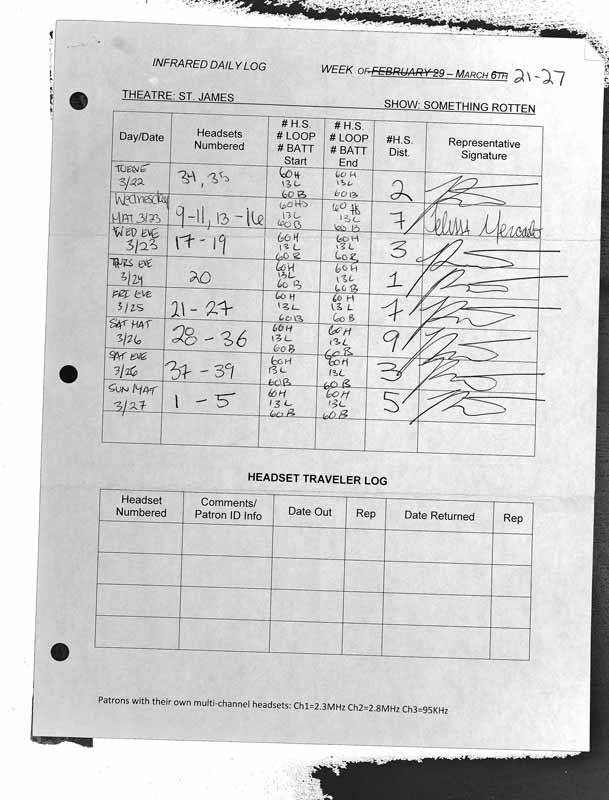 INFRARED DAILY LOG WEEK OF FEBRUARY 29 – MARCH 6TH 21-27
THEATRE: ST. JAMES SHOW: SOMETHING ROTTEN
Day/Date Headsets Numbered # H.S. # LOOP # BATT Start # H.S. # LOOP # BATT End #H.S. Dist. Representative Signature
3/22 34, 35 60H 13L 60B 60H 13L 60B 2
Wednesday MAT 3/23 9-11, 13-16 60HS 13L 60B 60HS 13L 60B 7 Mercado
WED EVE 3/23 17-19 60H 13L 60B 60H 13L 60B 3
THURS EVE 3/24 20 60H 13L 60B 60H 13L 60B 1
FRI EVE 3/25 21-27 60H 13L 60B 60H 13L 60B 7
SAT MAT 3/26 28-36 60H 13L 60B 60H 13L 60B 9
SAT EVE 3/26 37-39 60H 13L 60B 60H 13L 60B 3
SUN MAT 3/27 1-5 60H 13L 60B 60H 13L 60B 5
HEADSET TRAVELER LOG
Headset Numbered Comments/ Patron ID Info Date Out Rep Date Returned Rep
Patrons with their own multi-channel headsets: Ch1=2.3MHz Ch2=2.8MHz Ch3=95KHz